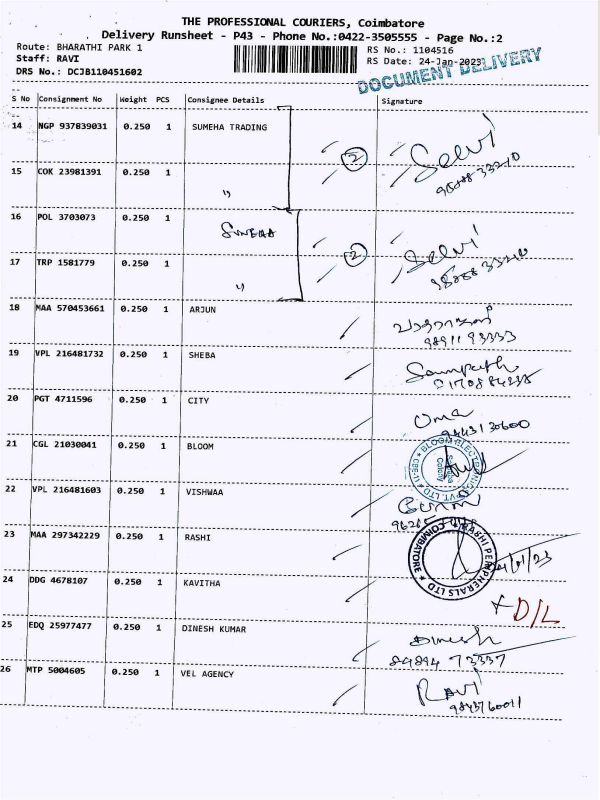 THE PROFESSIONAL COURIERS, Coimbatore
Delivery Runsheet - P43 - Phone No.:0422-3505555 - Page No.:2
Route: BHARATHI PARK 1 RS No.: 1104516
Staff: RAVI RS Date: 24-Jan-2023
DRS No.: DCJB110451602
DOCUMENT DELIVERY
S No Consignment No Weight PCS Consignee Details Signature
14 NGP 937839031 0.250 1 SUMEHA TRADING 2 Selvi
15 COK 23981391 0.250 1 "
16 POL 3703073 0.250 1 2 Selvi
17 TRP 1581779 0.250 1 "
18 MAA 570453661 0.250 1 ARJUN
9891193333
19 VPL 216481732 0.250 1 SHEBA Sampath
20 PGT 4711596 0.250 1 CITY Uma
9443130600
21 CGL 21030041 0.250 1 BLOOM
22 VPL 216481603 0.250 1 VISHWAA
23 MAA 297342229 0.250 1 RASHI COIMBATORE RASHI PERIPHERALS LTD
24 DDG 4678107 0.250 1 KAVITHA D/L
25 EDQ 25977477 0.250 1 DINESH KUMAR Dinesh
89894 73337
26 MTP 5004605 0.250 1 VEL AGENCY Ravi
9843760011